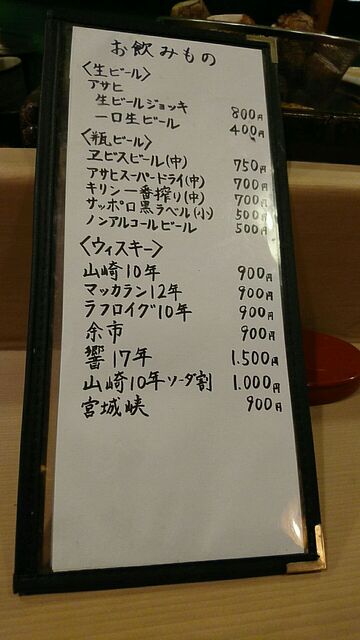 お飲みもの
〈生ビール〉
アサヒ
生ビールジョッキ 800円
一口生ビール 400円
〈瓶ビール〉
ヱビスビール(中) 750円
アサヒスーパードライ(中) 700円
キリン一番搾り(中) 700円
サッポロ黒ラベル(小) 500円
ノンアルコールビール 500円
〈ウィスキー〉
山崎10年 900円
マッカラン12年 900円
ラフロイグ10年 900円
余市 900円
響17年 1.500円
山崎10年ソーダ割 1.000円
宮城峡 900円